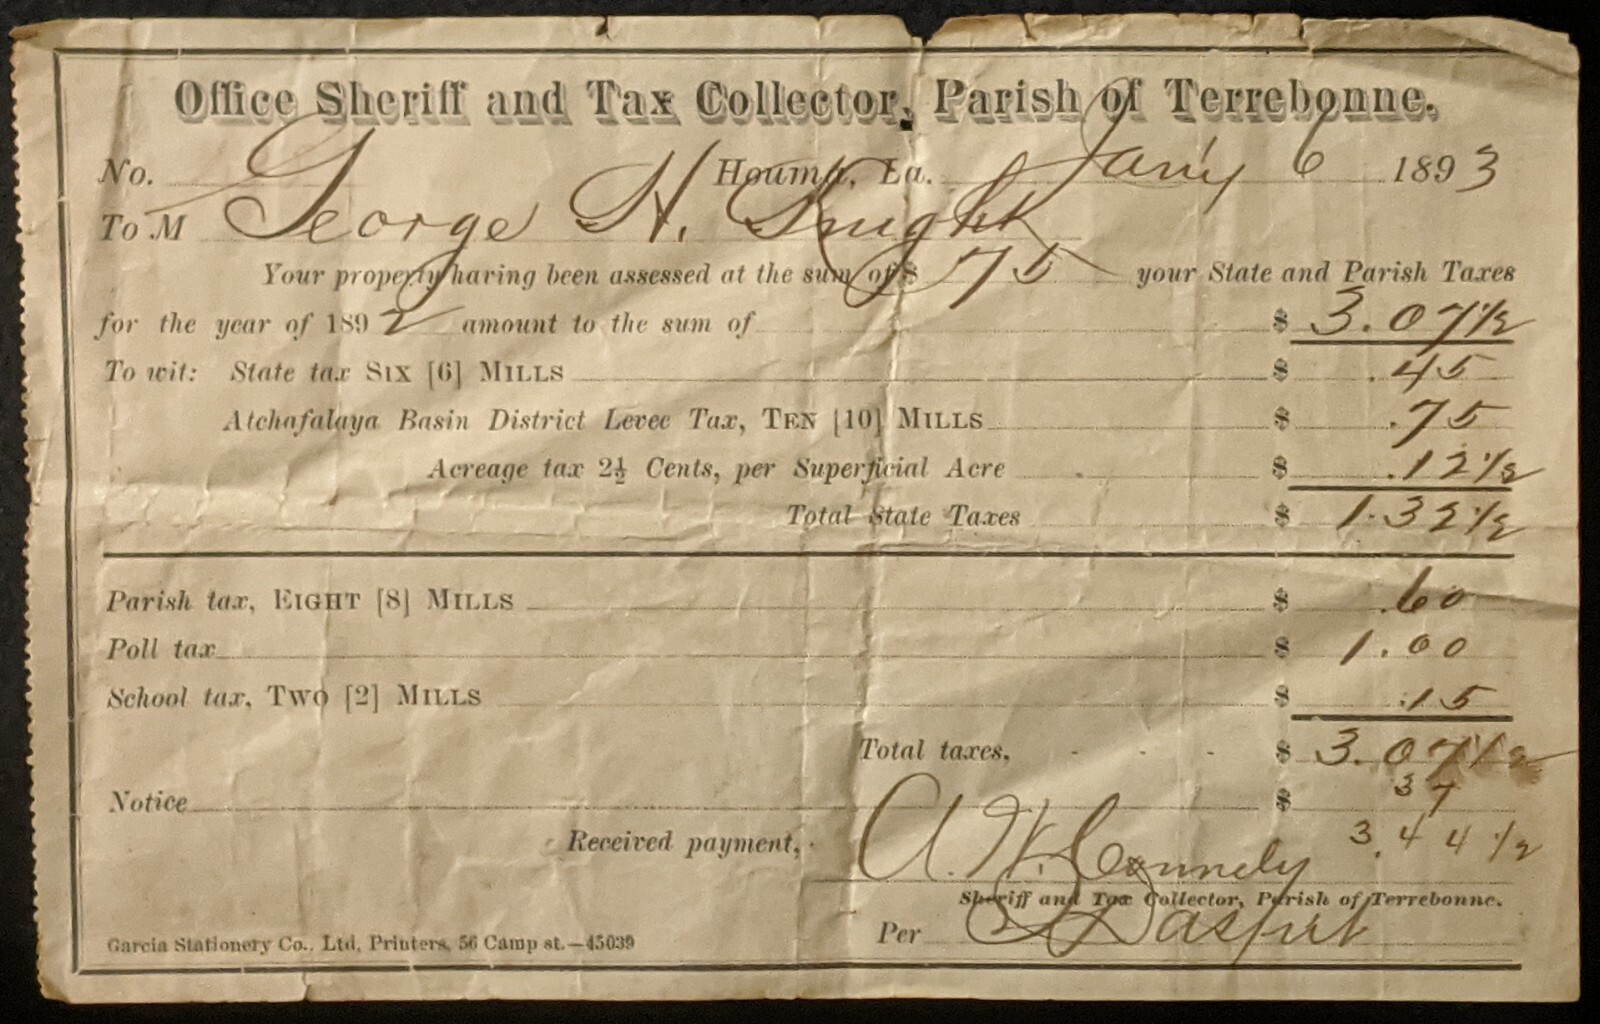 Office Sheriff and Tax Collector, Parish of Terrebonne.
No. Houma, La. Jan'y 6 1893
To M George H. Knight
Your property having been assessed at the sum of $ 75 your State and Parish Taxes
for the year of 1892 amount to the sum of $ 3.07 1/2
To wit: State tax SIX [6] MILLS $ .45
Atchafalaya Basin District Levee Tax, TEN [10] MILLS $ .75
Acreage tax 2½ Cents, per Superficial Acre $ .12 1/2
Total State Taxes $ 1.32 1/2
Parish tax, EIGHT [8] MILLS $ .60
Poll tax $ 1.00
School tax, TWO [2] MILLS $ .15
Total taxes, - - - $ 3.07 1/2
Notice $ 37
Received payment, A. W. Connely 3.44 1/2
Sheriff and Tax Collector, Parish of Terrebonne.
Per Daspit
Garcia Stationery Co., Ltd, Printers, 56 Camp st.—45039